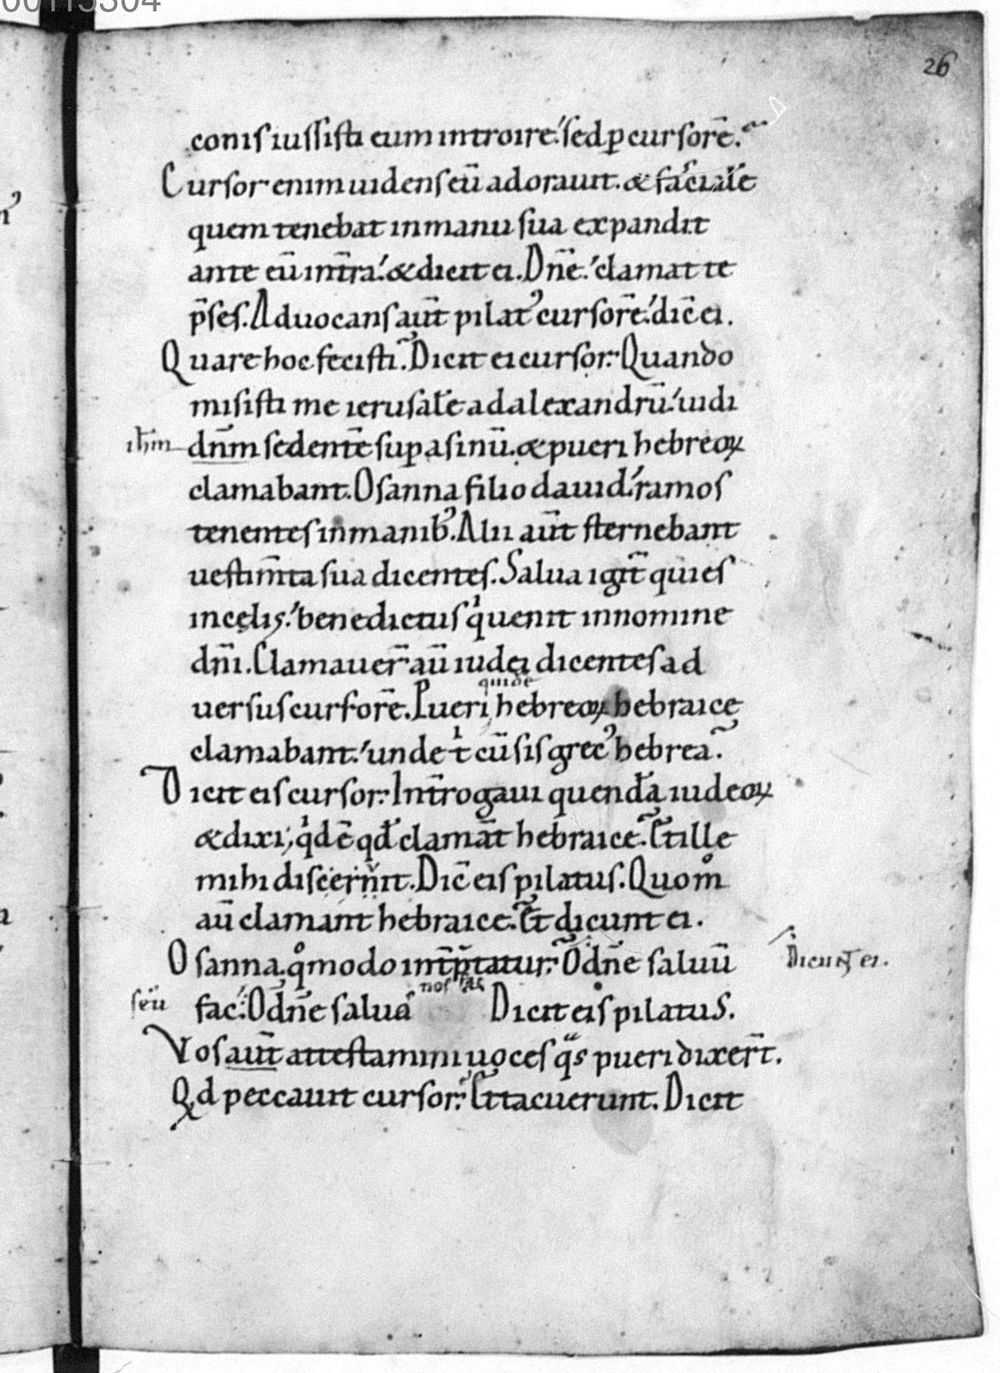 00115304
26
conis iussisti eum introire. sed p cursorē.
Cursor enim uidens eū adorauit. & faciale
quem tenebat in manu sua expandit
ante eū in tr̄a. & dicit ei. Dn̄e. clamat te
p̄ses. Aduocans aut̄ pilat' cursorē. dic̄ ei.
Quare hoc fecisti. Dicit ei cursor. Quando
misisti me ierusalē ad alexandrū. uidi
ihm̄ dn̄m sedentē sup asinū. & pueri hebreoꝝ
clamabant. Osanna filio dauid. ramos
tenentes in manib'. Alii aut̄ sternebant
uestim̄ta sua dicentes. Salua igit̄ qui es
in cęlis. benedictus q̇ uenit in nomine
dn̄i. Clamauer̄ aū iudei dicentes ad
quidē
uersus cursorē. Pueri hebreoꝝ hebraice
clamabant. unde t̄ cū sis grec' hebrea.
Dicit eis cursor. Int̄rogaui quendā iudeoꝝ
& dixi, q̇d ē qd̄ clamāt hebraice. Et ille
mihi discernit. Dic̄ eis pilatus. Quom̊
aū clamant hebraice. Et dicunt ei.
Osanna. q̊modo int̄p̄tatur. O dn̄e saluū Dicunt ei.
nos
seū fac. O dn̄e salua Dicit eis pilatus.
Vos aut̄ attestamini uoces q̄s pueri dixer̄t.
Qd peccauit cursor. Et tacuerunt. Dicit